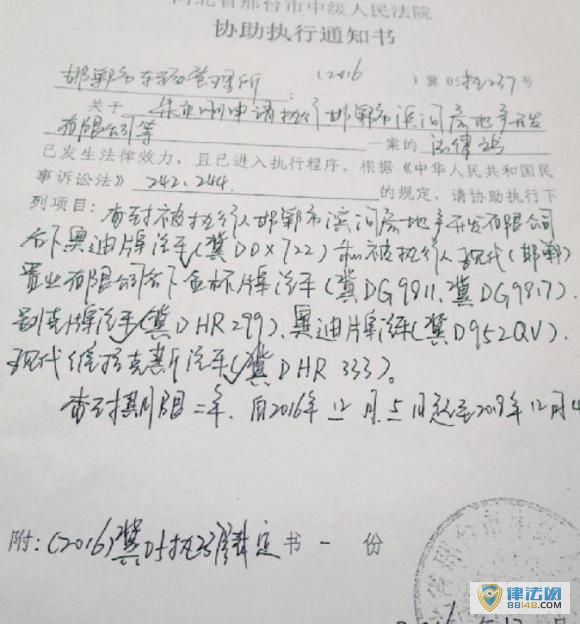 河北省邢台市中级人民法院
协助执行通知书
邯郸市车辆管理所：（2016）冀05执237号
关于 申请执行邯郸市滨河房地产开发
有限公司等 一案的 法律文书
已发生法律效力，且已进入执行程序。根据《中华人民共和国民
事诉讼法》242、244 的规定，请协助执行下
列项目：查封被执行人邯郸市滨河房地产开发有限公司
名下奥迪牌汽车（冀D0X722）和被执行人现代（邯郸）
置业有限公司名下金杯牌汽车（冀DG9811、冀DG9817）、
别克牌汽车（冀DHR299）、奥迪牌汽车（冀D952QV）、
现代维拉克斯汽车（冀DHR333）。
查封期限二年，自2016年12月5日起至2018年12月4
附：（2016）冀05执 裁定书一份
律法网
88148.COM